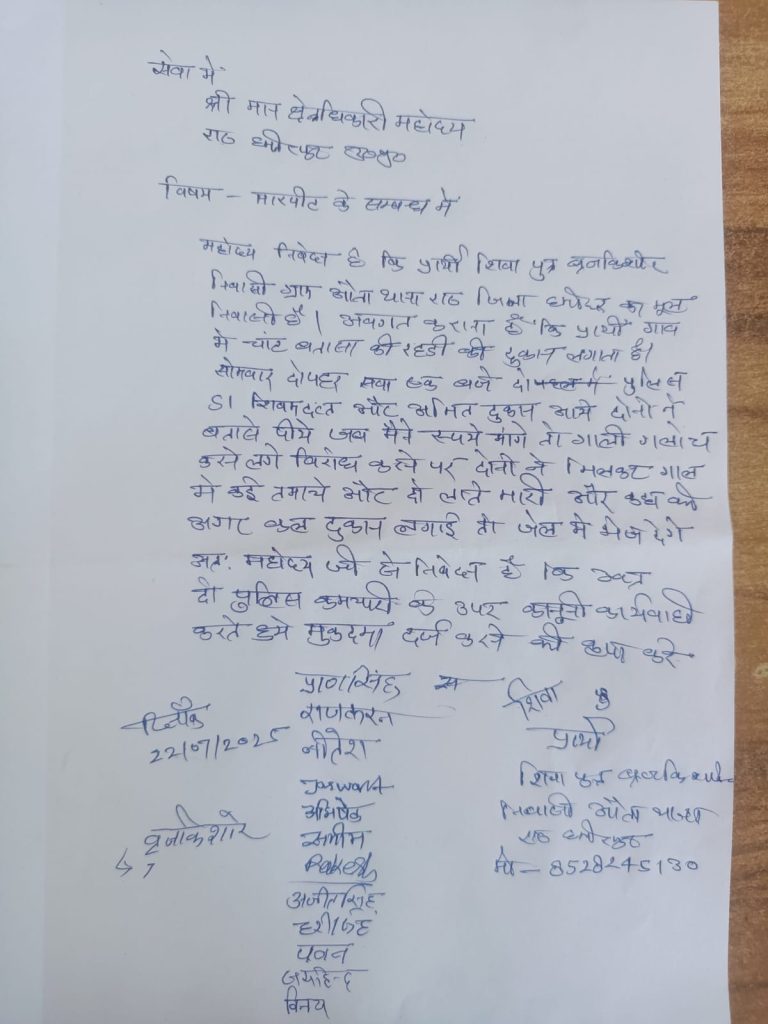 सेवा में
श्री मान क्षेत्राधिकारी महोदय
राठ हमीरपुर उ०प्र०
विषय - मारपीट के सम्बन्ध में
महोदय निवेदन है कि प्रार्थी शिवा पुत्र ब्रजकिशोर
निवासी ग्राम औता थाना राठ जिला हमीरपुर का मूल
निवासी है। अवगत कराना है कि प्रार्थी गाव
मे चांट बतासा की रहडी की दुकान लगाता है।
सोमवार दोपहर सवा एक बजे दो पुलिस
SI शिवमदत्त और अमित दुकान आये दोनो ने
बतासे पीये जब मैने रूपये मांगे तो गाली गलोच
करने लगे विरोध करने पर दोनो ने मिलकर गाल
मे कई तमाचे और दो लाते मारी और कहा की
अगर कल दुकान लगाई तो जेल मे भेज देगे
अतः महोदय जी से निवेदन है कि उक्त
दो पुलिस कर्मचारी के उपर कानूनी कार्यवाही
करते हुये मुकदमा दर्ज करने की कृपा करे
प्राणसिंह
राजकरन
नीतेश
Jaswant
अभिषेक
Rakesh
अजीतसिंह
पवन
जयहिन्द
विनय
दिनाँक
22/07/2025
बृजकिशोर
शिवा
प्रार्थी
शिवा पुत्र ब्रजकिशोर
निवासी औता थाना
राठ हमीरपुर
मो - 8528245130